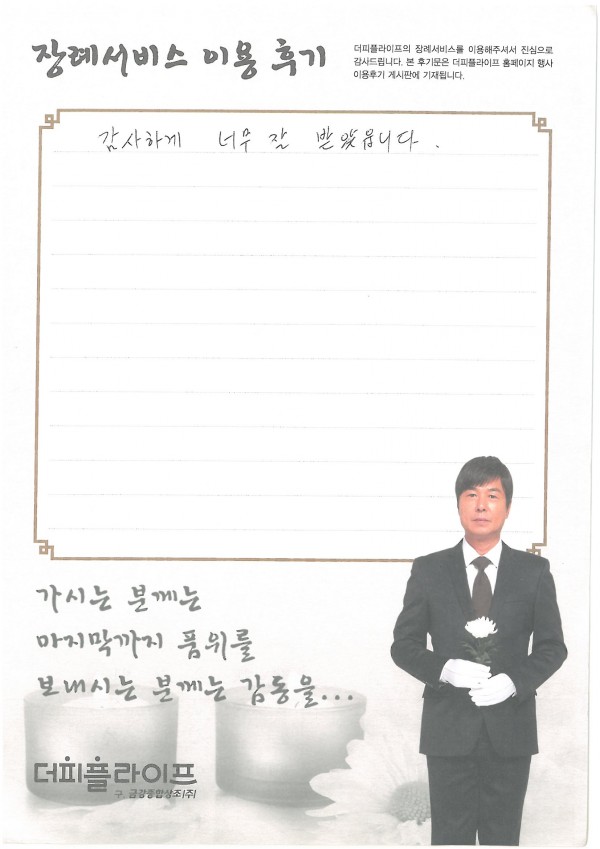 장례서비스 이용 후기
더피플라이프의 장례서비스를 이용해주셔서 진심으로
감사드립니다. 본 후기문은 더피플라이프 홈페이지 행사
이용후기 게시판에 기재됩니다.
감사하게 너무 잘 받았습니다.
가시는 분께는
마지막까지 품위를
보내시는 분께는 감동을...
더피플라이프
구. 금강종합상조(주)